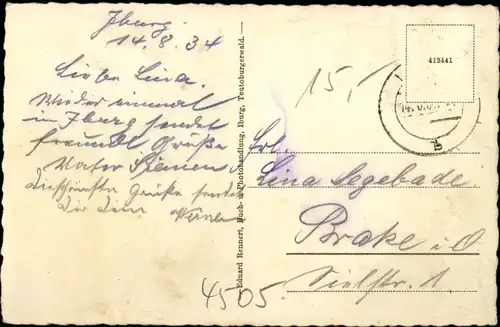 Iburg.
14.8.34
Liebe Lina.
Wieder einmal
in Iburg sendet
freundl Grüße
Vater
Grüße sendet
Dir Dein Werner
Eduard Rennert, Buch- u. Photohandlung, Iburg, Teutoburgerwald.
15,-
412441
Frl.
Lina Segebade
Brake i. O
Sielstr. 1
4505